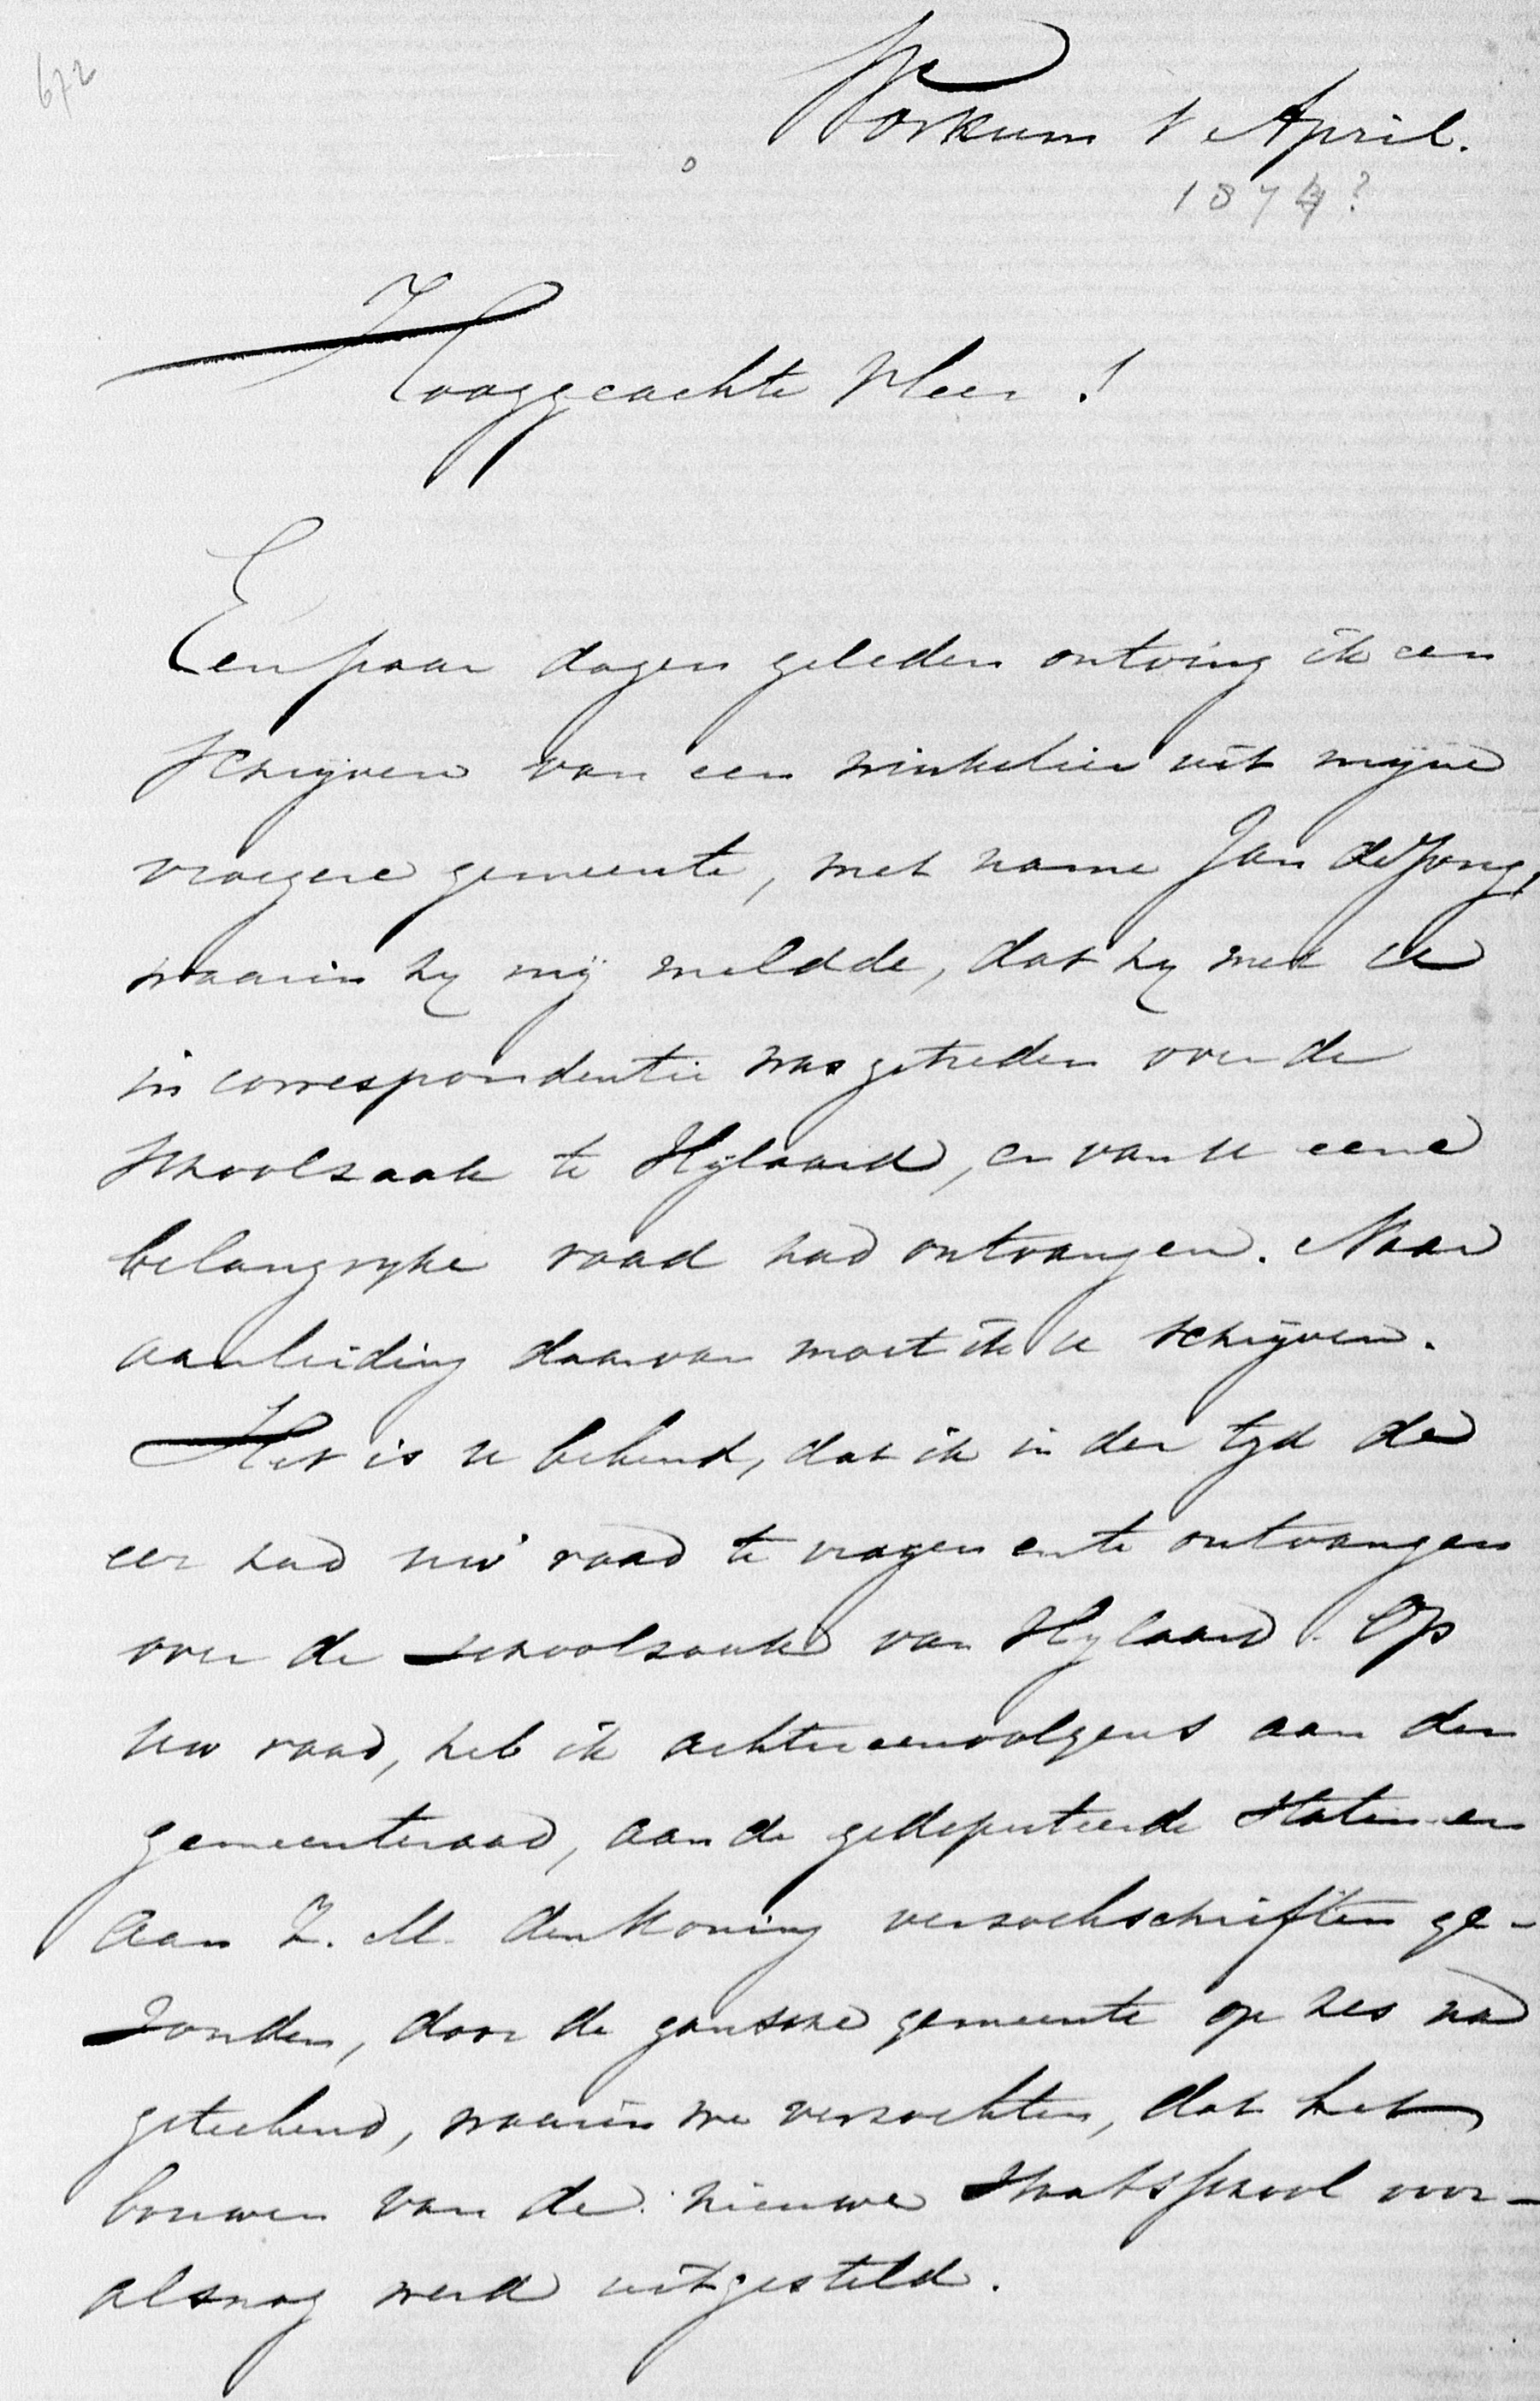 672
Workum 1 April.
1874?
Hooggeachte Heer!
Een paar dagen geleden ontving ik een
schrijven van een winkelier uit mijne
vroegere gemeente, met name Jan de Jong,
waarin hy mij meldde, dat hy met U
in correspondentie was getreden over de
schoolzaak te Hijlaard, en van U eene
belangryke raad had ontvangen. Naar
aanleiding daarvan moet ik U schrijven.
Het is U bekend, dat ik in der tyd de
eer had uw raad te vragen en te ontvangen
over de schoolzaak van Hylaard. Op
uw raad, heb ik achtereenvolgens aan den
gemeenteraad, aan de gedeputeerde Staten en
aan Z. M. den Koning verzoekschriften ge-
zonden, door de gansche gemeente op zes na
geteekend, waarin we verzochten, dat het
bouwen van de nieuwe Staatsschool voor-
alsnog werd uitgesteld.